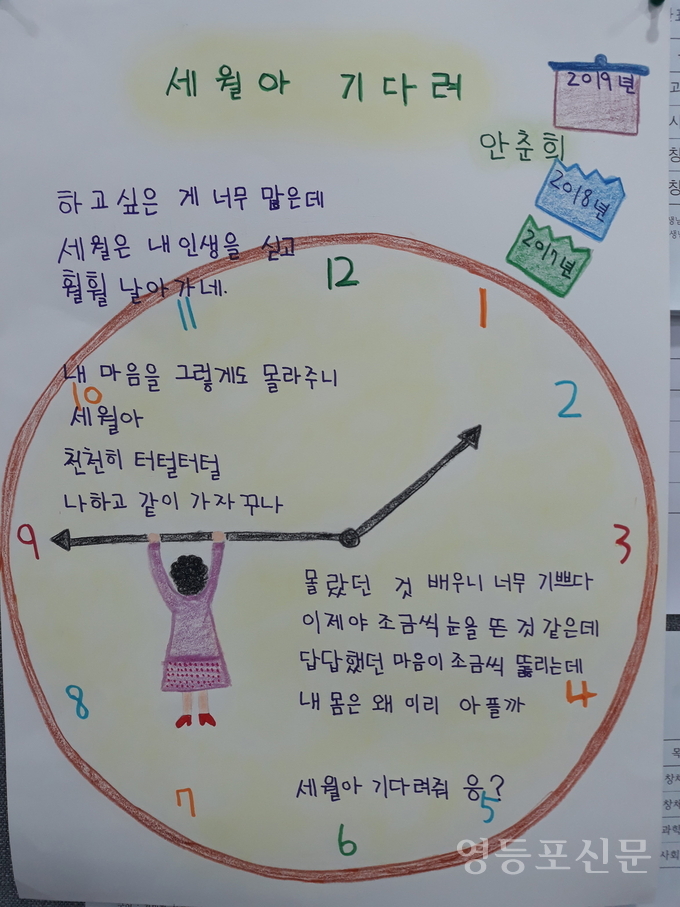 세월아 기다려
2019년
안춘희
2018년
2017년
하고싶은 게 너무 많은데
세월은 내 인생을 싣고
훨훨 날아가네.
12
11
1
내 마음을 그렇게도 몰라주니
10
2
세월아
천천히 터털터털
나하고 같이 가자꾸나
9
3
몰랐던 것 배우니 너무 기쁘다
이제야 조금씩 눈을 뜬 것 같은데
답답했던 마음이 조금씩 뚫리는데
내 몸은 왜 이리 아플까
8
4
세월아 기다려줘 응?
7
5
6
영등포신문
창체
창체
과학
사회